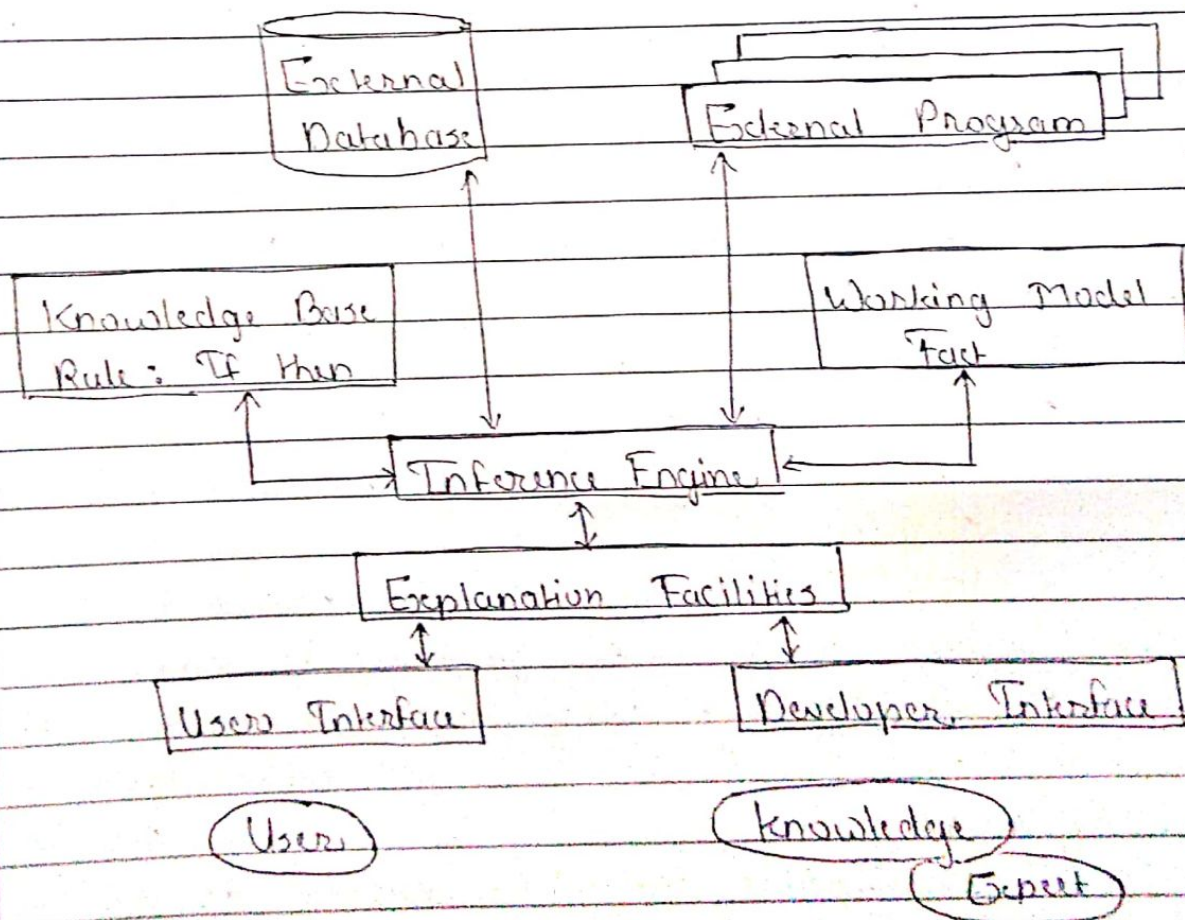 External
Database
External Program
Knowledge Base
Rule : If then
Working Model
Fact
Inference Engine
Explanation Facilities
User Interface
Developer Interface
User
Knowledge
Expert